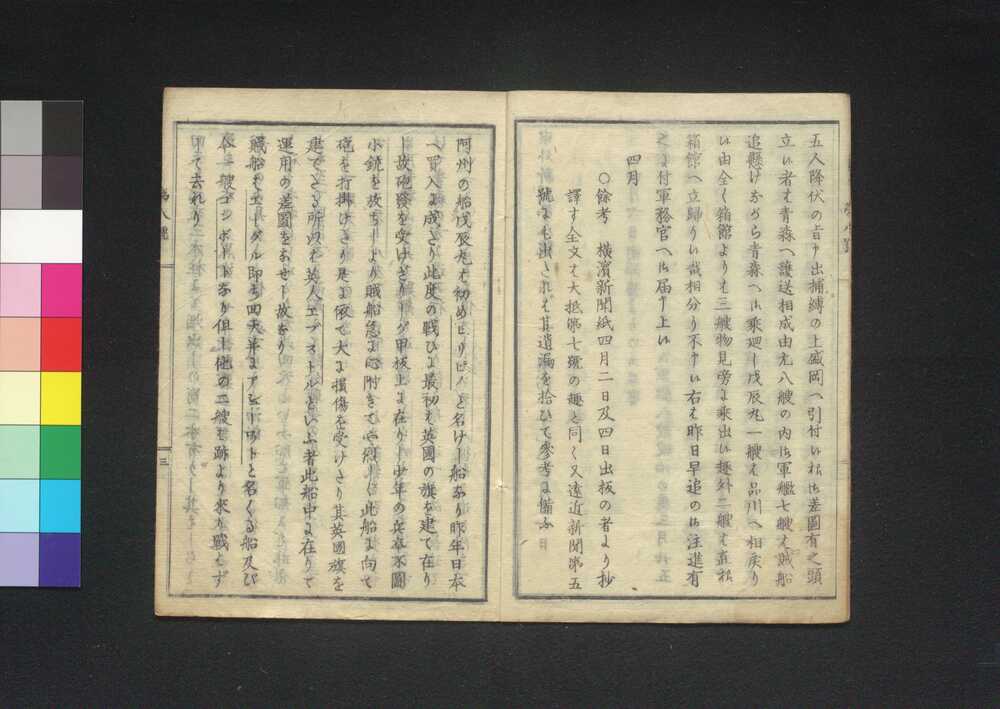 五人降伏の旨申出捕縛の上盛岡へ引付候様御差圖有之頭
立候者を青森へ護送相成由尤八艘の内御軍艦七艘を賊船
追懸けながら青森へ御乗廻し戊辰丸一艘を品川へ相戻り
候由全く箱館よりも三艘物見旁々乗出候趣外二艘を直様
箱館へ立歸り候哉相分り不申候右を昨日早追の御注進有
之に付軍務官へ御届申上候
四月
〇餘考 横濱新聞紙四月二日及四日出板の者より抄
譯す全文は大抵第七號の趣と同し又遠近新聞第五
號にも出されは其遺漏を拾ひて參考に備ふ
阿州の船戊辰丸を初めヒリピノと名けし船なり昨年日本
へ買入に成たり此度の戰ひに最初も英國の旗を建て在り
し故砲發を受けざりしが甲板上に在りし少年の兵卒不圖
小銃を放ちしより賊船急に心附きて烈しく此船に向て
砲を打掛けたり是に依て大に損傷を受けたり其英國旗を
建てたる所以を英人エプストルといふ者此船中に在りて
運用の差圖をあせし故なり
賊船はエーグル即ち回天并にアシーロットと名くる船及び
一艘コンボートなり但し他の二艘も跡より來り戰はず
して去れり
第八號
三